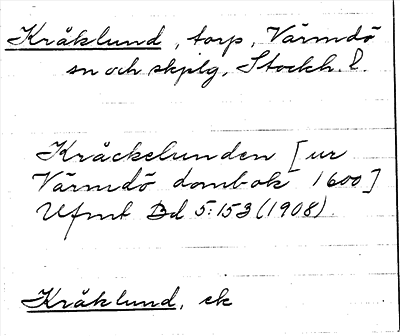 Kråklund, torp, Värmdö
sn och skplg, Stockh. l.
Kråckelunden [ur
Värmdö dombok 1600]
Ufmt Bd 5:153 (1908).
Kråklund, ek